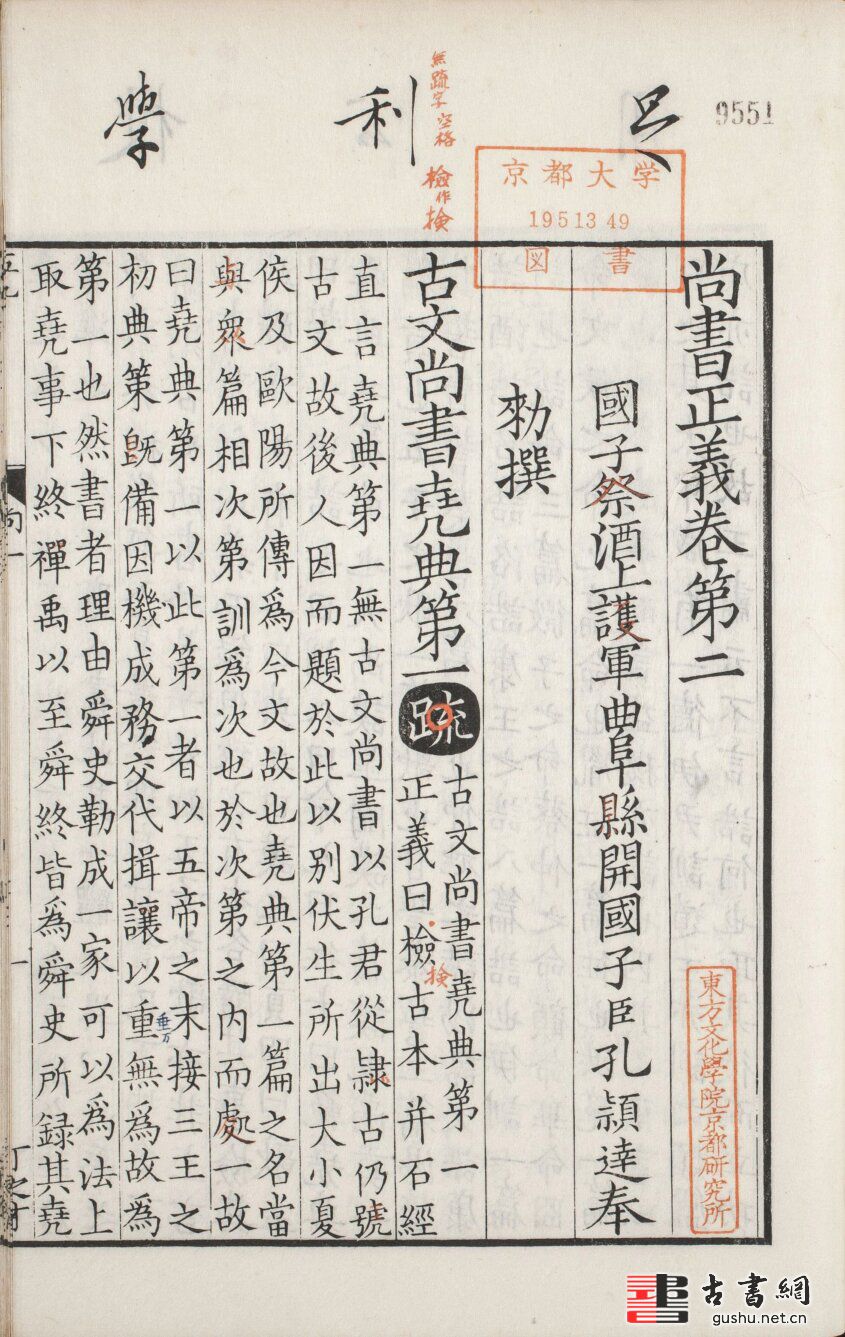 9551
足利學
無䟽字空格
檢作
撿
京都大学
1951349
図書
尚書正義卷第二
國子祭酒上護軍曲阜縣開國子臣孔穎達奉
勑撰
古文尚書堯典第一䟽
古文尚書堯典第一
正義曰檢古本并石經
撿
直言堯典第一無古文尚書以孔君從隷古仍號
古文故後人因而題於此以別伏生所出大小夏
侯及歐陽所傳爲今文故也堯典第一篇之名當
與衆篇相次第訓爲次也於次第之內而處一故
曰堯典第一以此第一者以五帝之末接三王之
初典策旣備因機成務交代揖讓以重無爲故爲
第一也然書者理由舜史勒成一家可以爲法上
取堯事下終禪禹以至舜終皆爲舜史所録其堯
一
東方文化學院京都研究所
古書網
gushu.net.cn